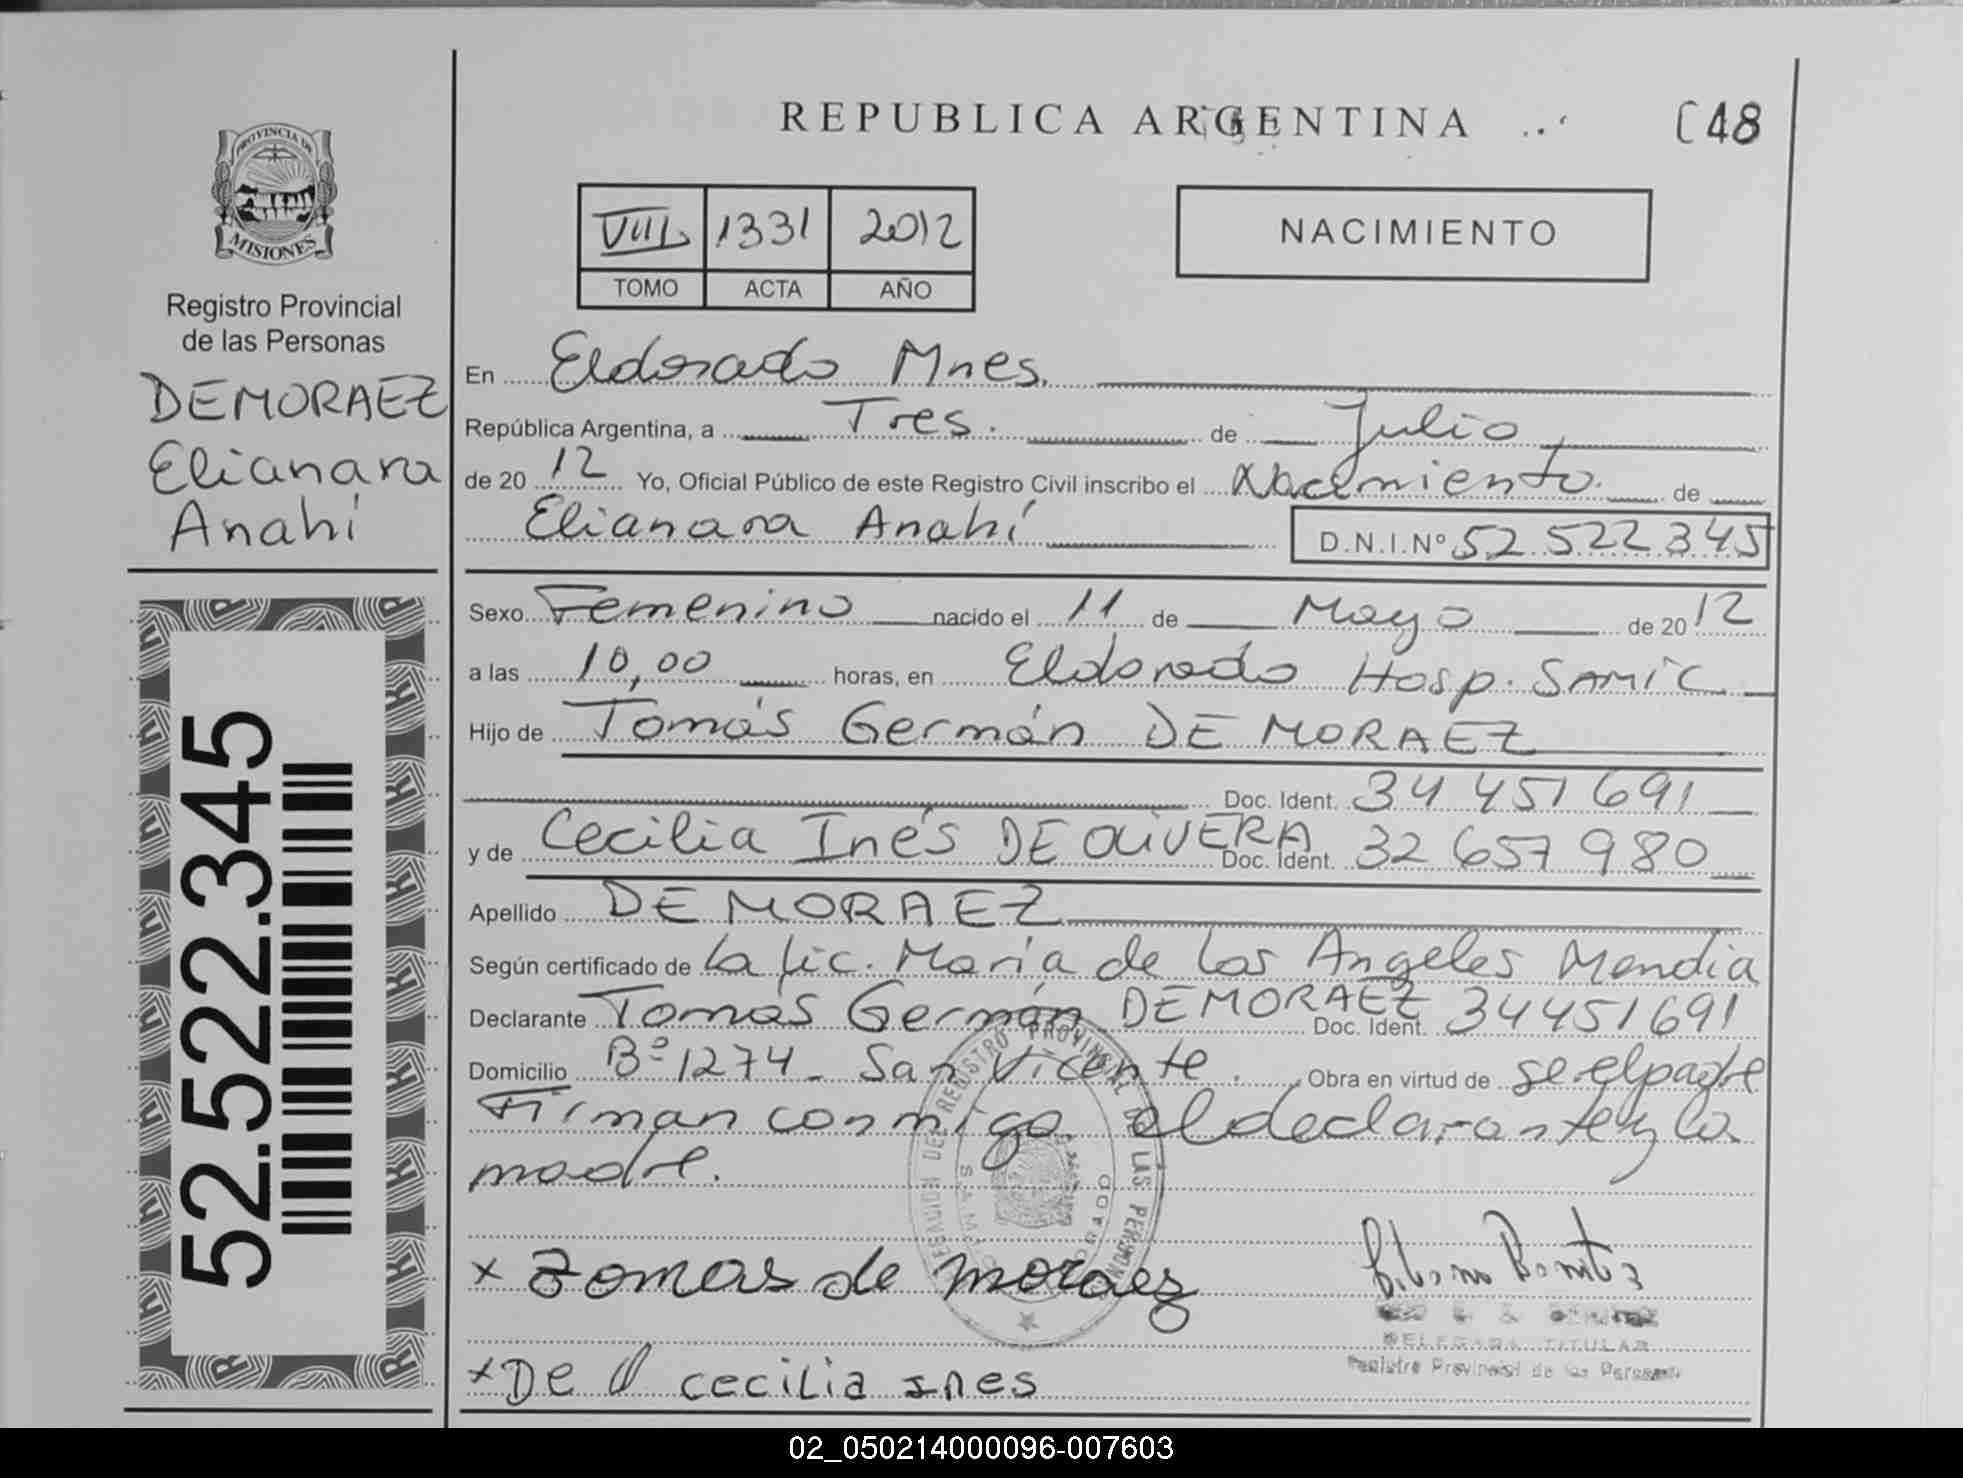 REPUBLICA ARGENTINA
C48
PROVINCIA DE
MISIONES
Registro Provincial
de las Personas
DEMORAEZ
Elianara
Anahí
52.522.345
VIII 1331 2012
TOMO ACTA AÑO
NACIMIENTO
En Eldorado Mnes.
República Argentina, a Tres. de Julio
de 20 12 Yo, Oficial Público de este Registro Civil inscribo el Nacimiento. de
Elianara Anahí D.N.I.Nº 52 522 345
Sexo Femenino nacido el 11 de Mayo de 20 12
a las 10,00 horas, en Eldorado Hosp. SAMIC
Hijo de Tomás Germán DE MORAEZ
Doc. Ident. 34 451 691
y de Cecilia Inés DE OLIVERA Doc. Ident. 32 657 980
Apellido DE MORAEZ
Según certificado de la Lic. María de los Angeles Mendia
Declarante Tomás Germán DEMORAEZ Doc. Ident. 34451691
Domicilio Bº 1274 - San Vicente. Obra en virtud de se el padre
Firman conmigo el declarante y la
madre.
REGISTRO PROVINCIAL DE LAS PERSONAS
x Zomas de moraez
x De O cecilia ines
DELEGADA TITULAR
Registro Provincial de las Personas
02_050214000096-007603